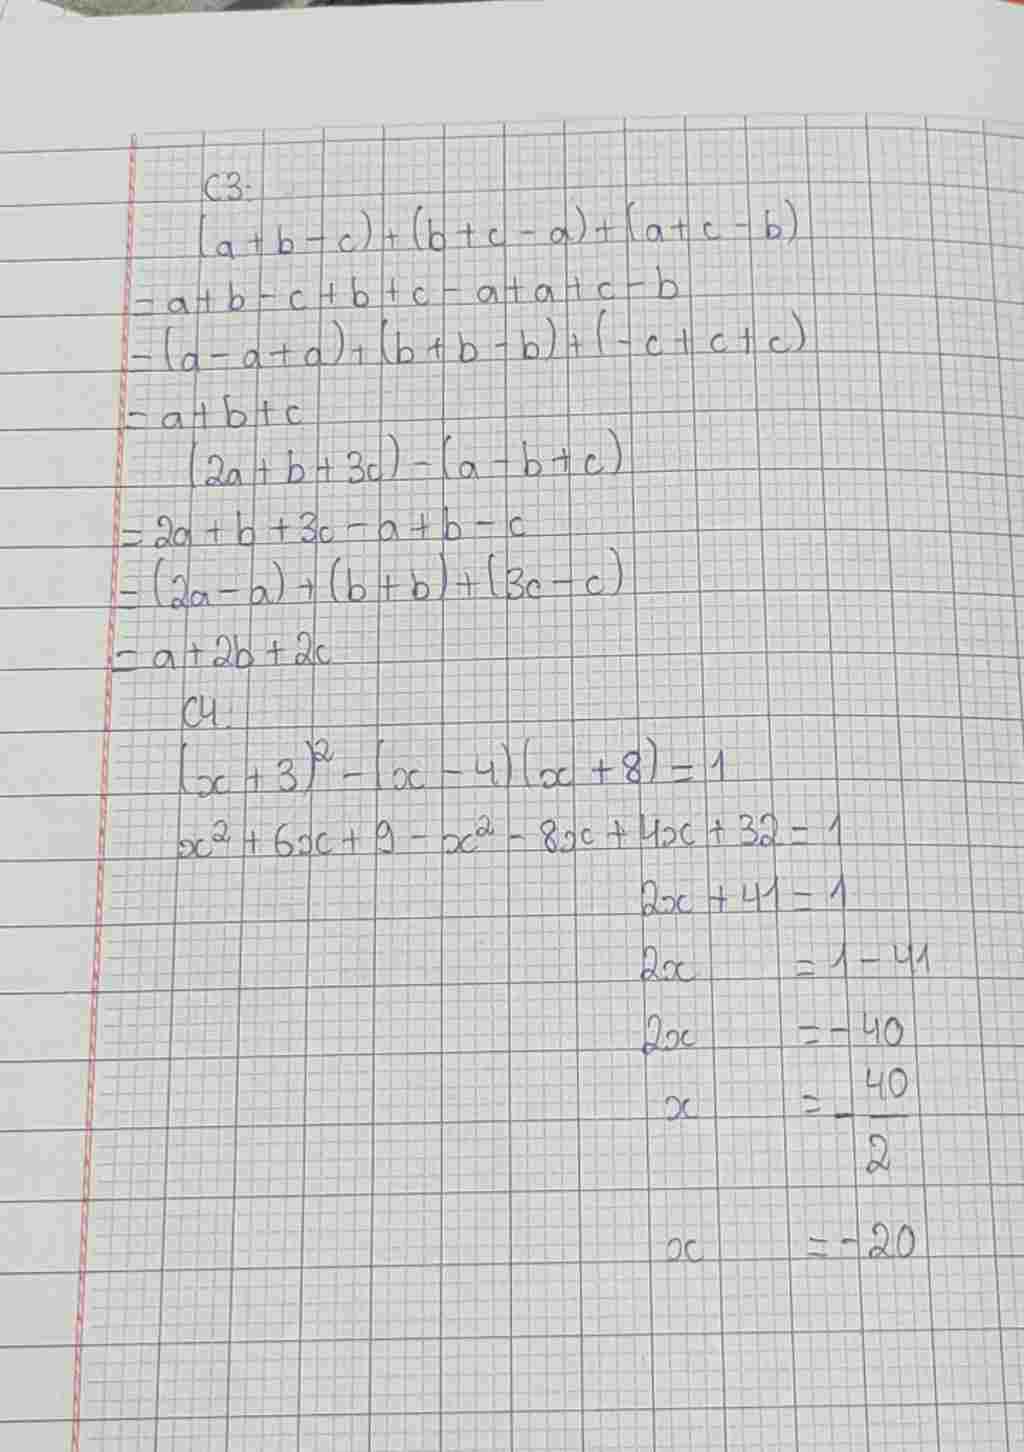 C3:
(a+b-c)+(b+c-a)+(a+c-b)
=a+b-c+b+c-a+a+c-b
=(a-a+a)+(b+b-b)+(-c+c+c)
=a+b+c
(2a+b+3c)-(a-b+c)
=2a+b+3c-a+b-c
=(2a-a)+(b+b)+(3c-c)
=a+2b+2c
C4:
(x+3)²-(x-4)(x+8)=1
x²+6x+9-x²-8x+4x+32=1
2x+41=1
2x =1-41
2x =-40
x =-40/2
x =-20